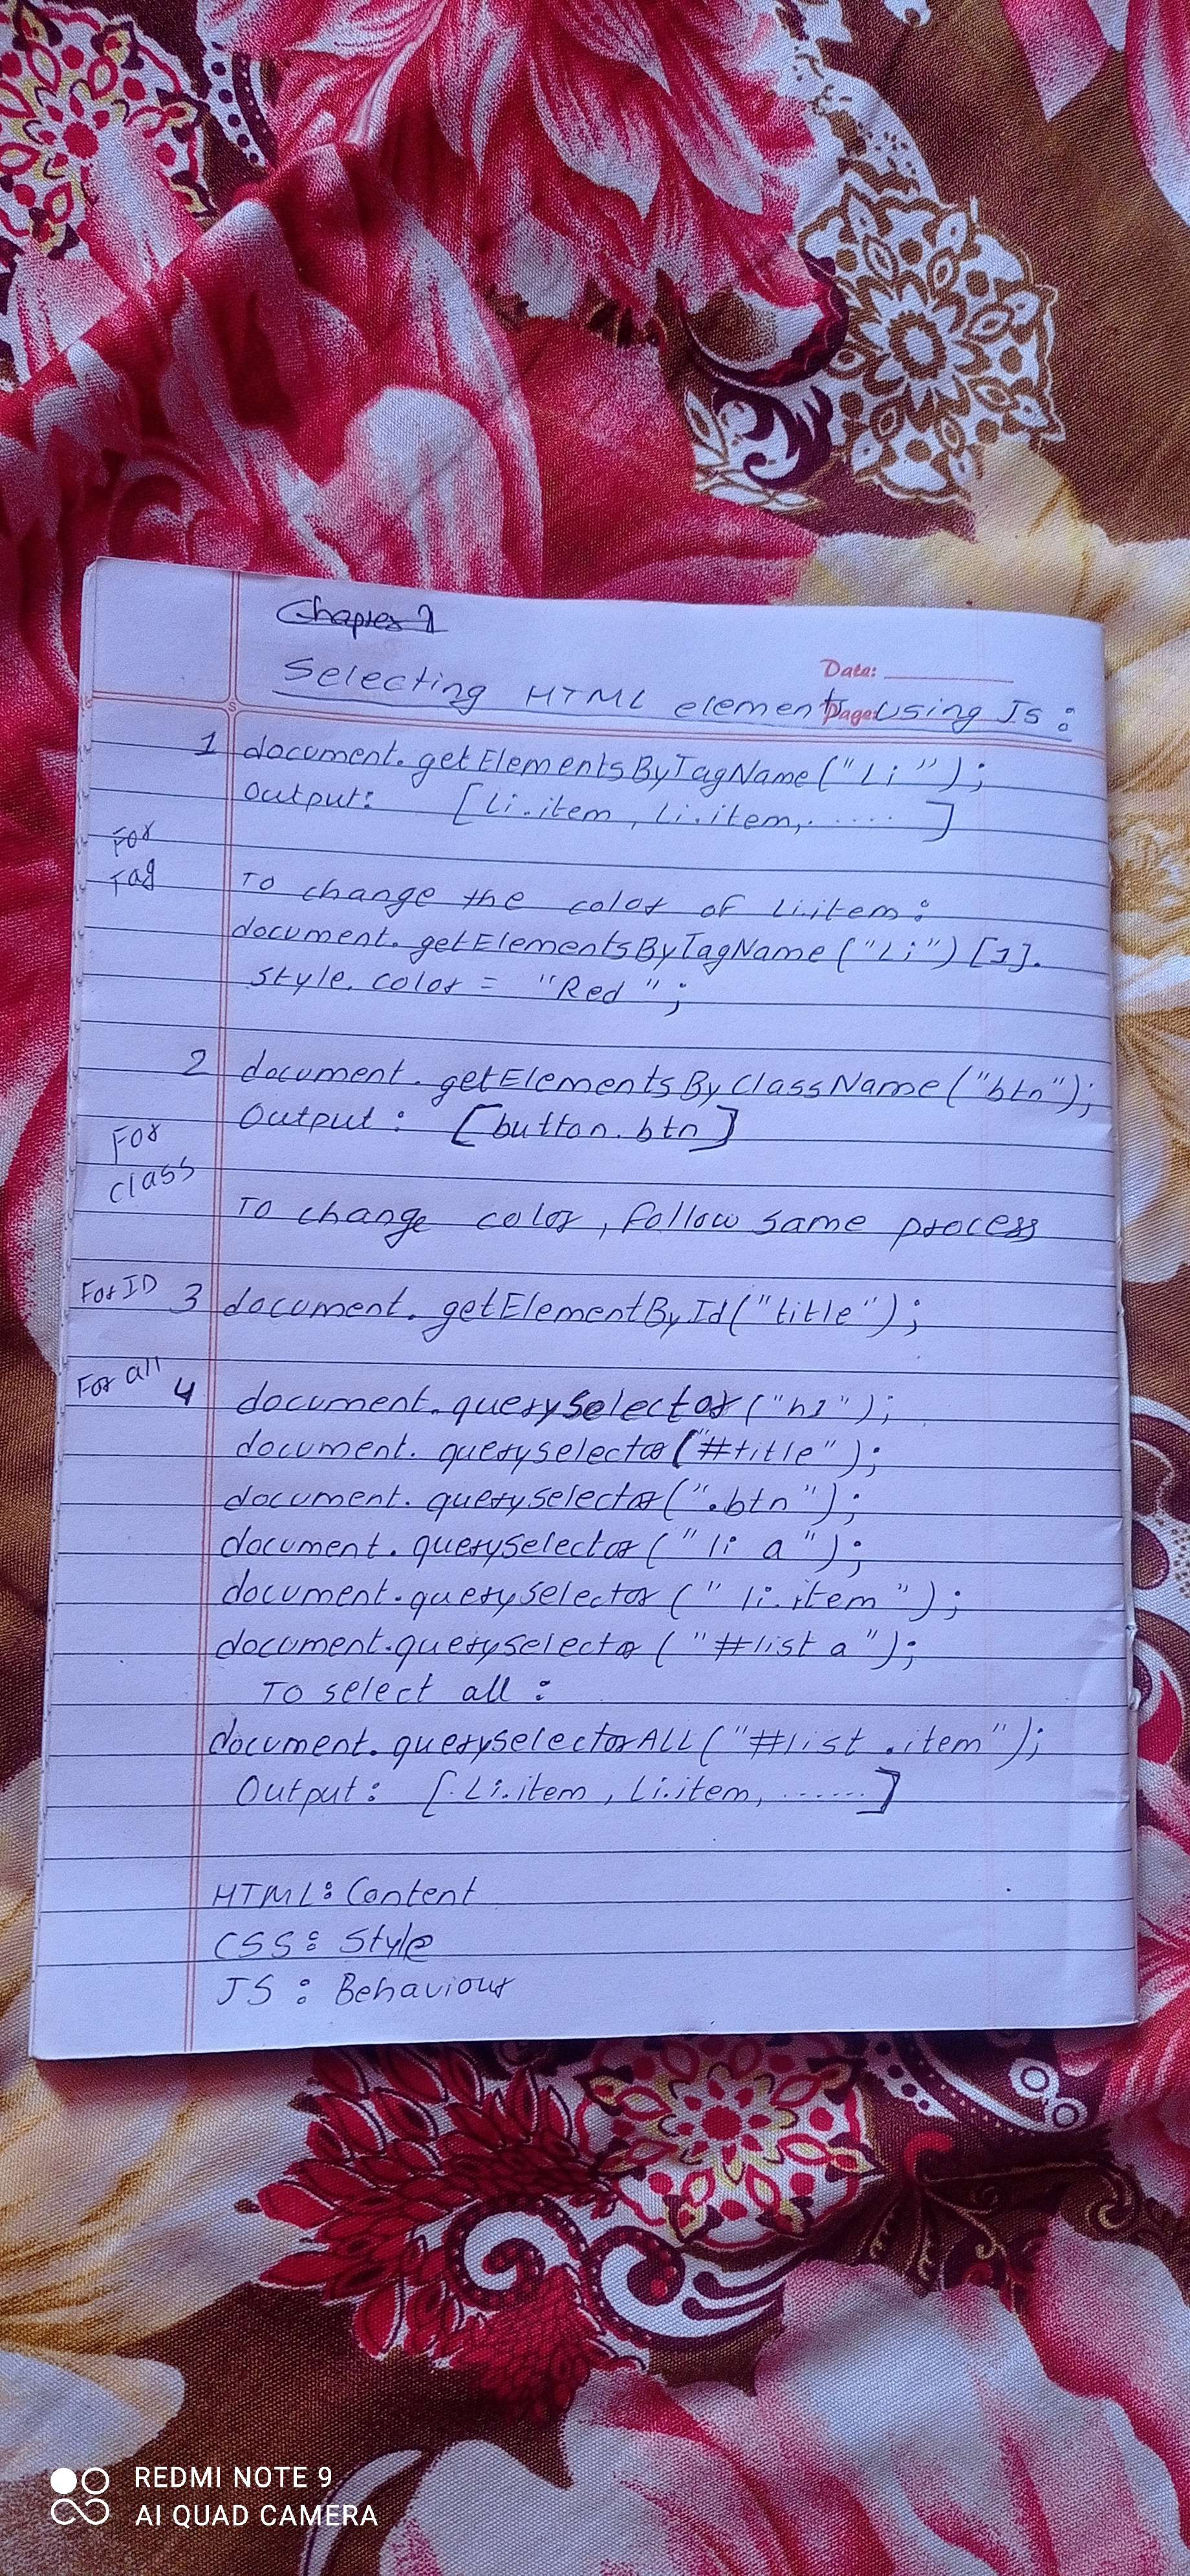 Chapter 1
Data:
Selecting HTML element using Js :
Page:
1 document.getElementsByTagName("Li");
Output: [Li.item, Li.item, ..... ]
For
Tag
To change the color of Li.item:
document.getElementsByTagName("Li")[1].
style.color = "Red";
2 document.getElementsByClassName("btn");
Output : [button.btn]
For
class
To change color, follow same process
For ID 3 document.getElementById("title");
For all 4 document.querySelector("h1");
document.querySelector("#title");
document.querySelector(".btn");
document.querySelector("li a");
document.querySelector("li.item");
document.querySelector("#list a");
To select all :
document.querySelectorALL("#list .item");
Output: [Li.item, Li.item, ......]
HTML: Content
CSS: Style
JS : Behaviour
REDMI NOTE 9
AI QUAD CAMERA